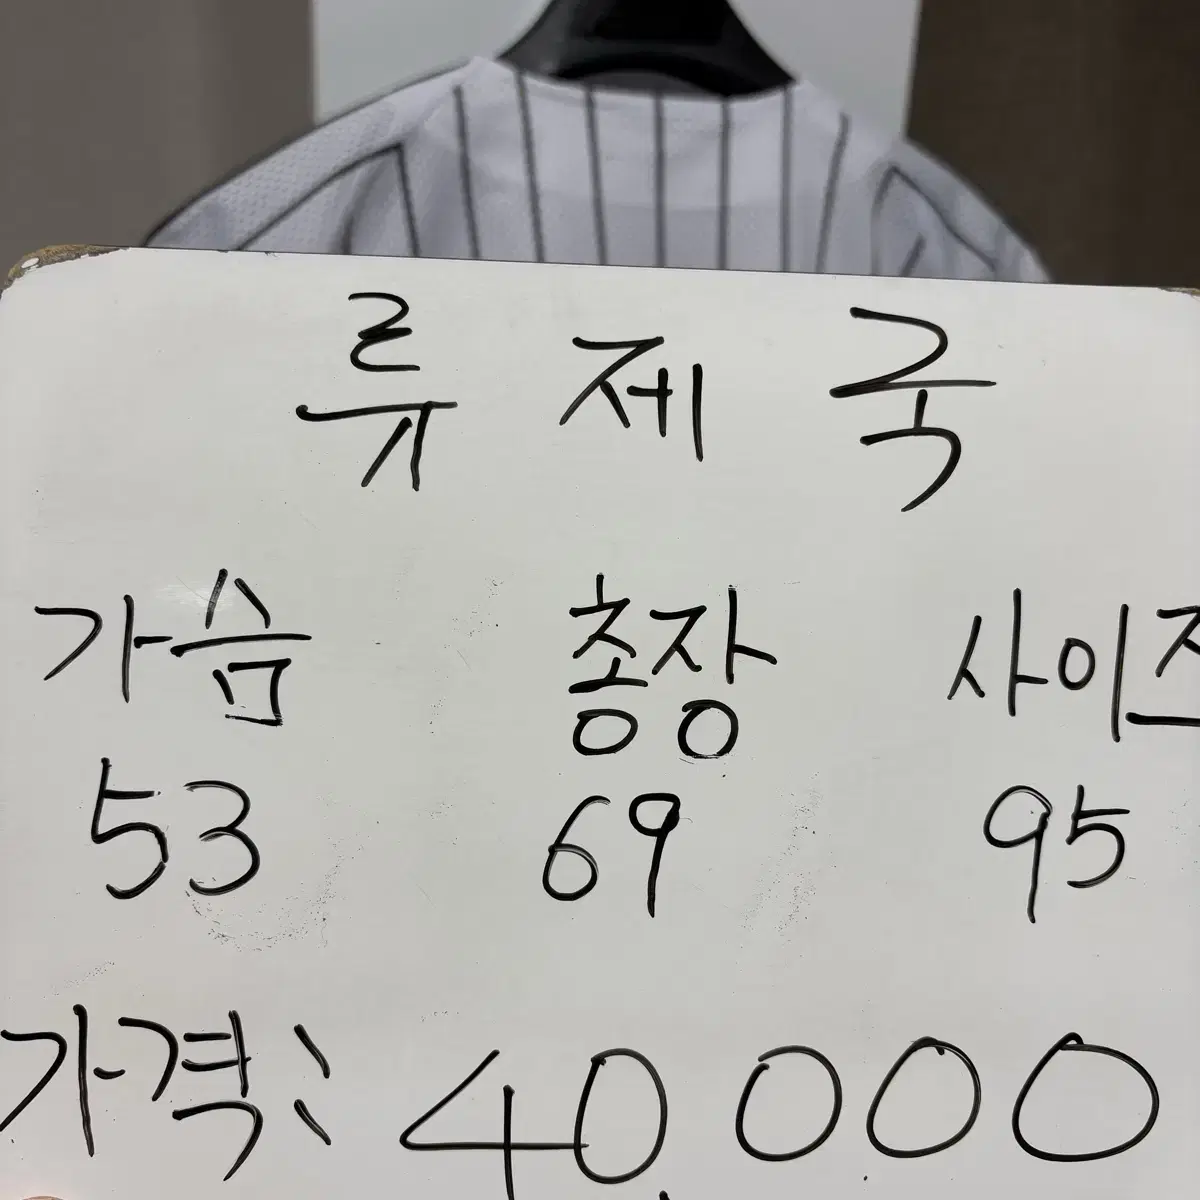 류제국
가슴 총장 사이즈
53 69 95
가격: 40,000